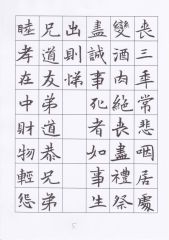 喪三年常悲咽居處
變酒肉絕喪盡禮祭
盡誠事死者如事生
出則悌
兄道友弟道恭兄弟
睦孝在中財物輕怨
5